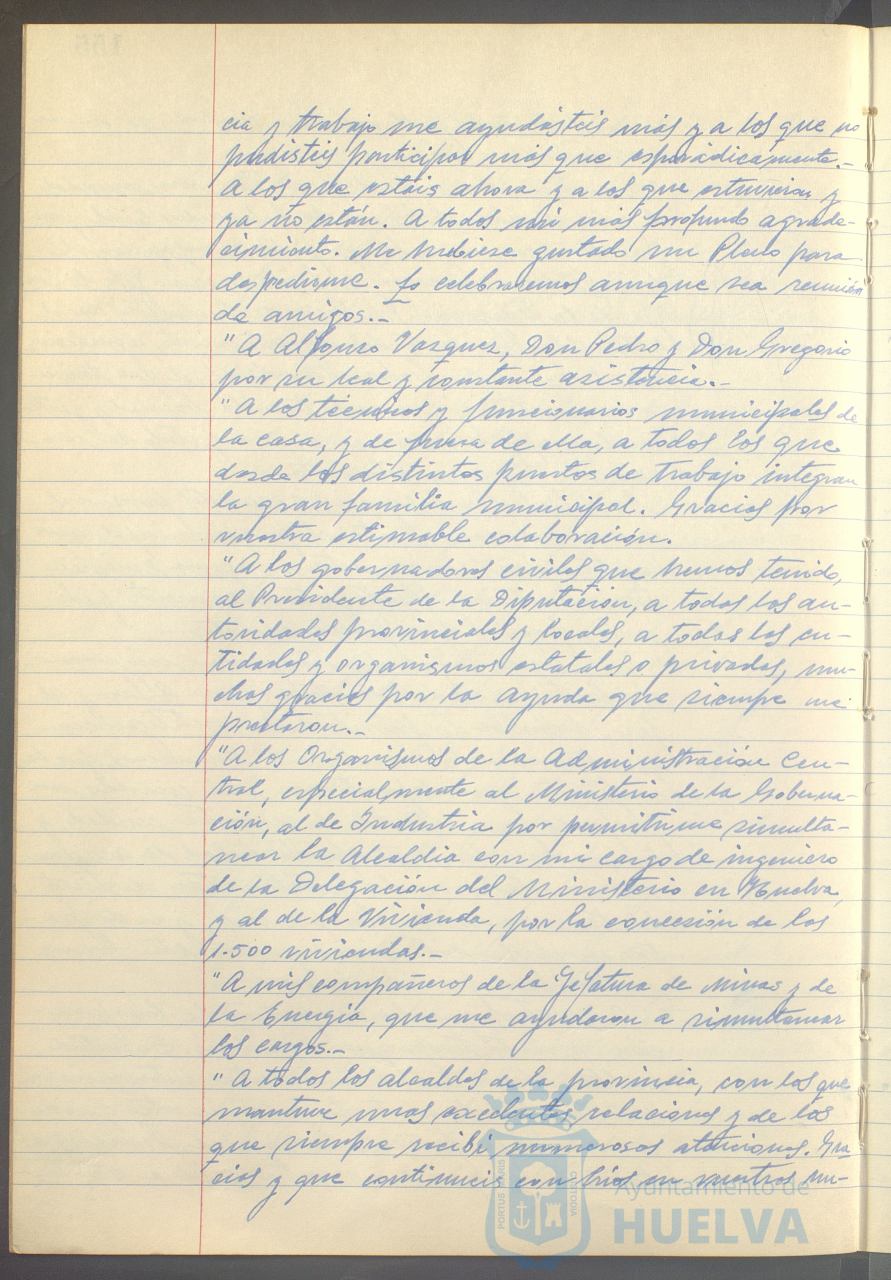 cia y trabajo me ayudásteis más y a los que no
pudisteis participar más que esporádicamente.-
A los que estáis ahora y a los que estuvieron y
ya no están. A todos mi más profundo agrade-
cimiento. Me hubiese gustado un Pleno para
despedirme. Lo celebraremos aunque sea reunión
de amigos.-
"A Alfonso Vazquez, Don Pedro y Don Gregorio
por su leal y constante asistencia.-
"A los técnicos y funcionarios municipales de
la casa, y de fuera de ella, a todos los que
desde los distintos puestos de trabajo integran
la gran familia municipal. Gracias por
vuestra estimable colaboración.
"A los gobernadores civiles que hemos tenido,
al Presidente de la Diputación, a todas las au-
toridades provinciales y locales, a todas las en-
tidades y organismos estatales o privados, mu-
chas gracias por la ayuda que siempre me
prestaron.-
"A los Organismos de la Administración Cen-
tral, especialmente al Ministerio de la Goberna-
ción, al de Industria por permitirme simulta-
near la Alcaldia con mi cargo de ingeniero
de la Delegación del Ministerio en Huelva,
y al de la Vivienda, por la concesión de las
1.500 viviendas.-
"A mis compañeros de la Jefatura de Minas y de
la Energía, que me ayudaron a simultanear
los cargos.-
"A todos los alcaldes de la provincia, con los que
mantuve unas excelentes relaciones y de los
que siempre recibí numerosas atenciones. Gra
cias y que continueis con bríos en vuestros mu-
PORTUS MARIS
CUSTODIA
Ayuntamiento de
HUELVA